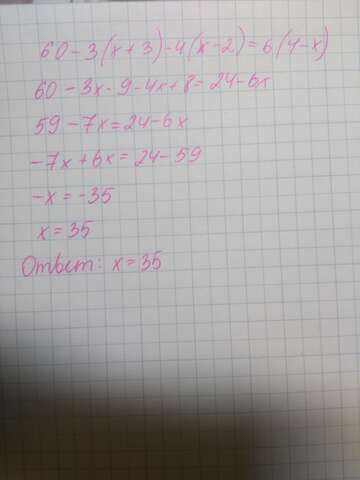 60 - 3(x + 3) - 4(x - 2) = 6(4 - x)
60 - 3x - 9 - 4x + 8 = 24 - 6x
59 - 7x = 24 - 6x
-7x + 6x = 24 - 59
-x = -35
x = 35
Ответ: x = 35